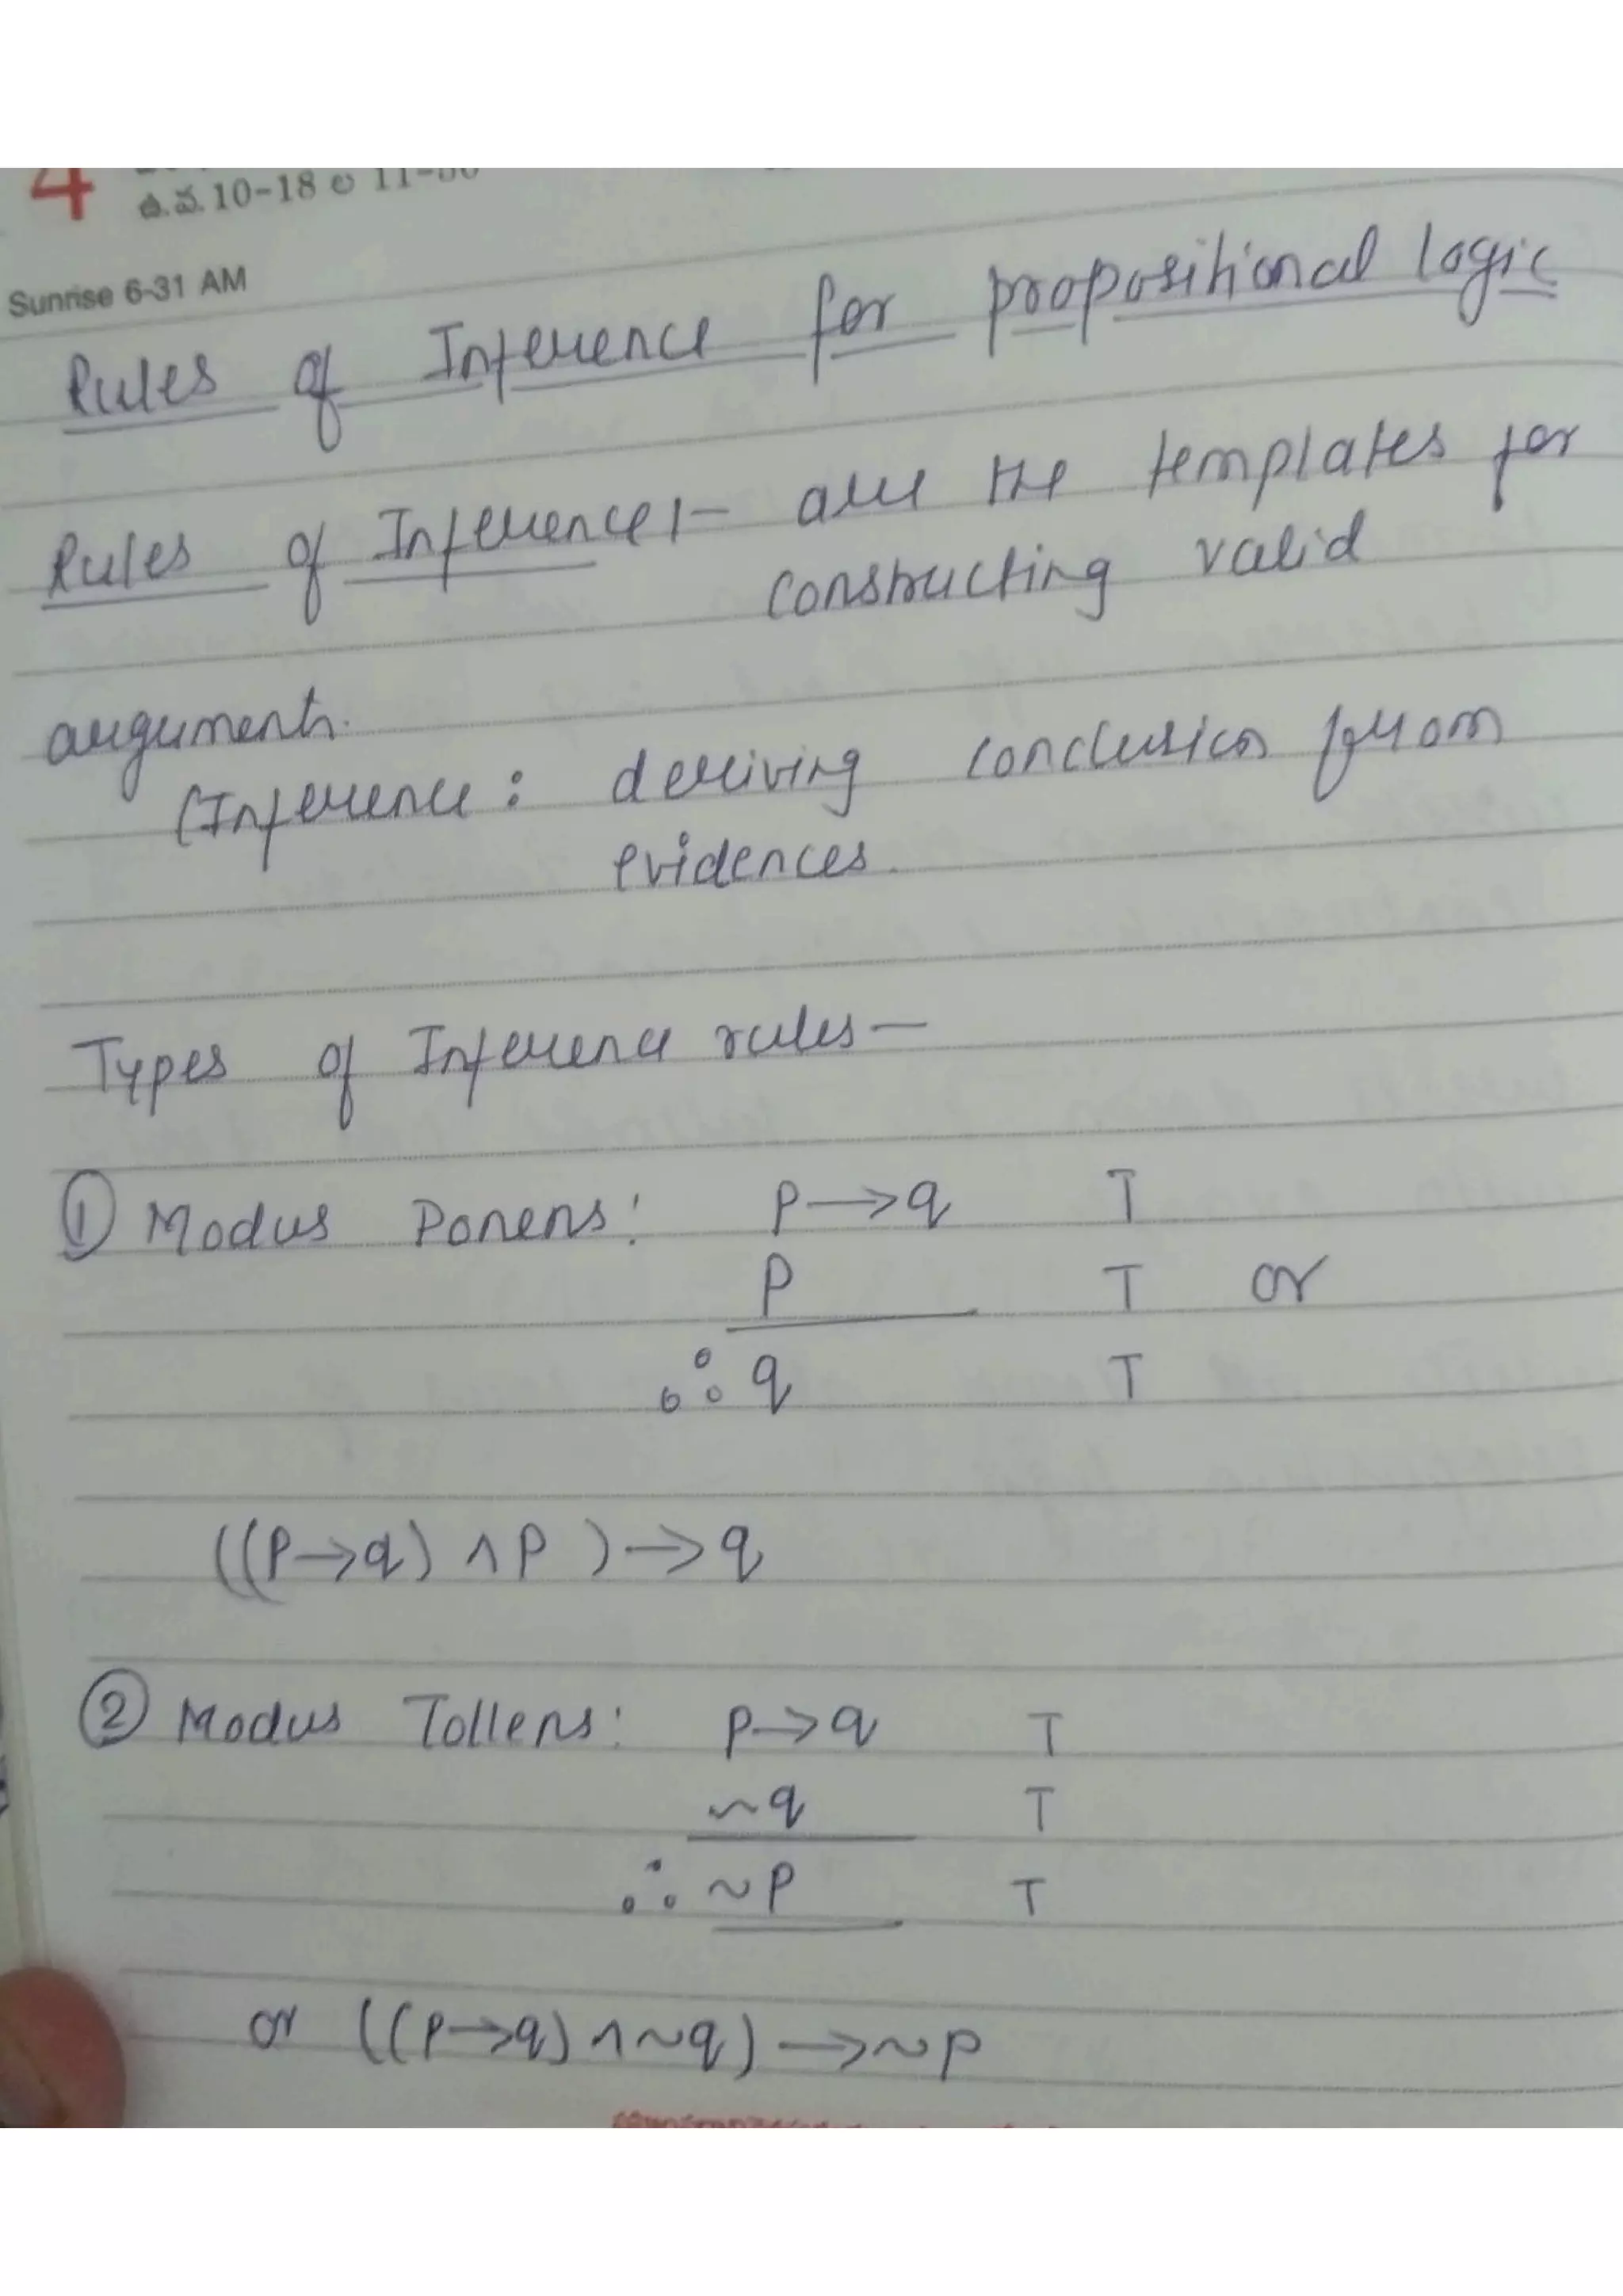 4
ఉ.వ.10-18 ల 11-30
Sunrise 6-31 AM
Rules of Inference for propositional logic
Rules of Inference:- are the templates for
constructing valid
arguments.
(Inference: deriving conclusion from
evidences.
Types of Inference rules—
① Modus Ponens: P→q T
P T or
∴ q T
((P→q) ∧ P) → q
② Modus Tollens: P→q T
~q T
∴ ~P T
or ((P→q) ∧ ~q) → ~P